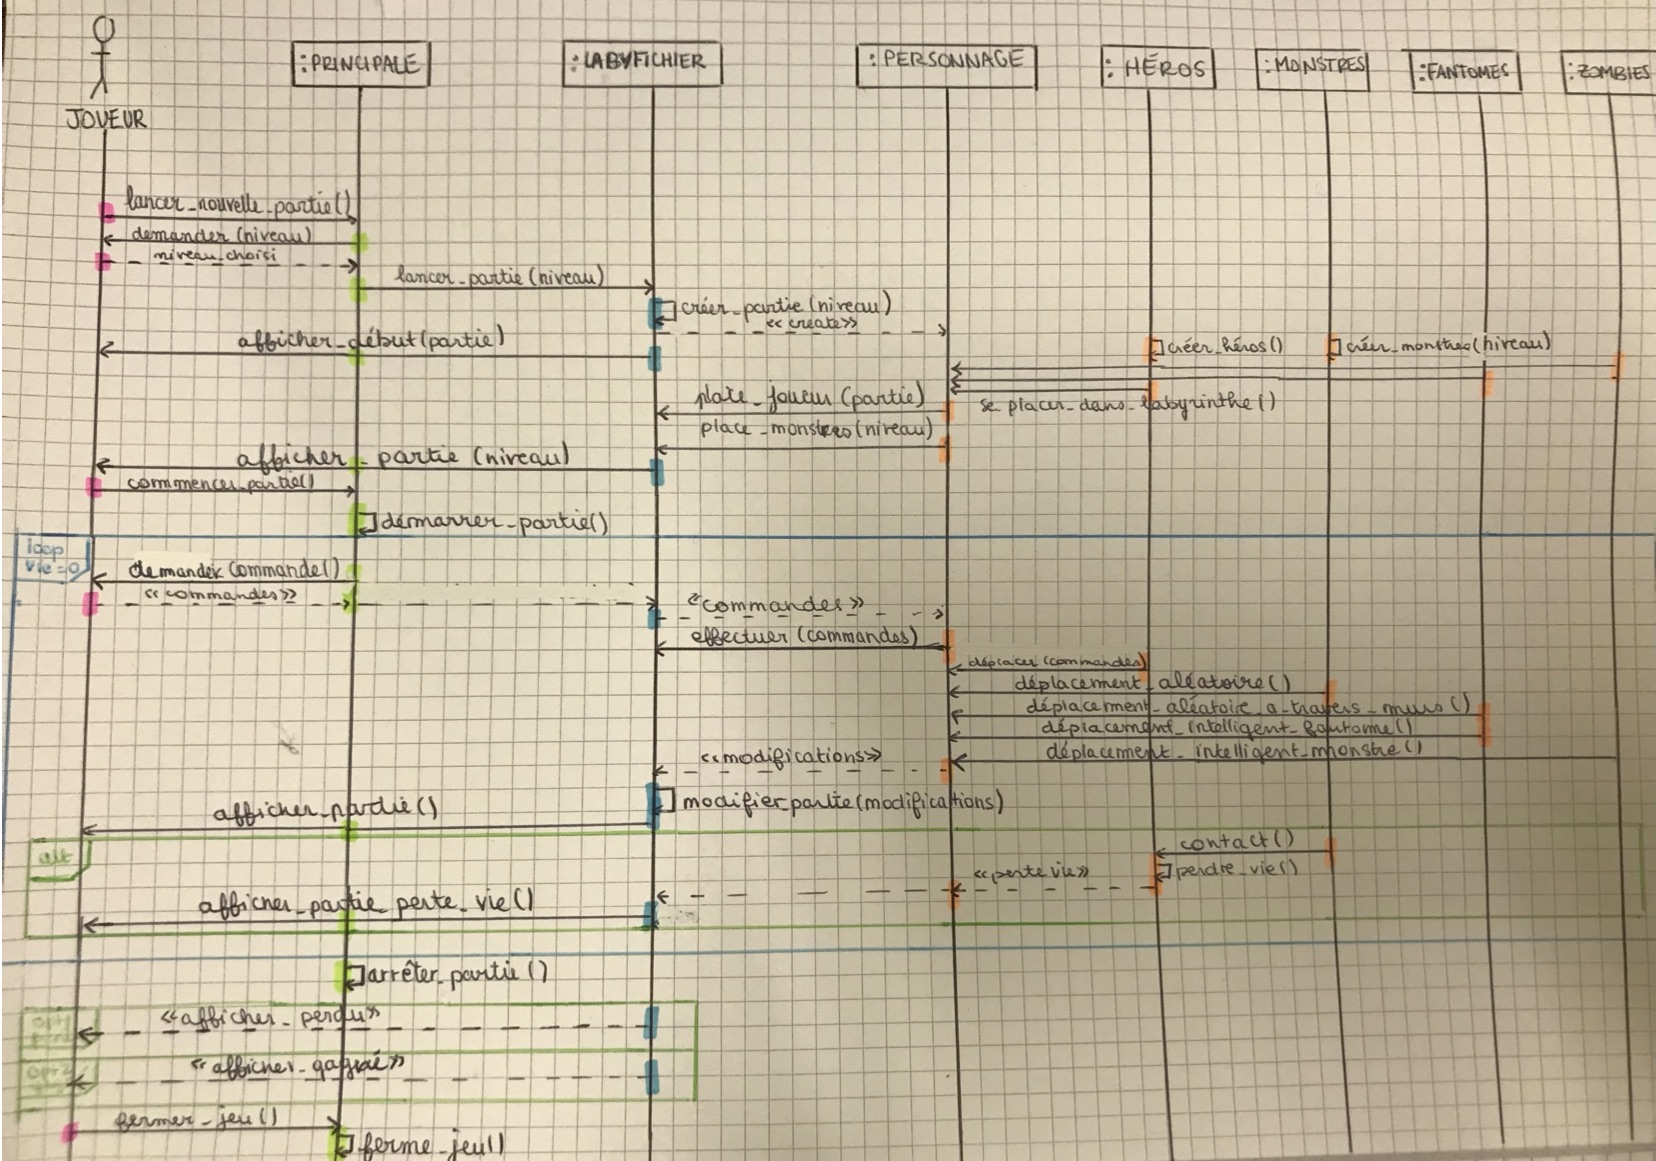 JOUEUR
:PRINCIPALE
:LABYFICHIER
:PERSONNAGE
:HÉROS
:MONSTRES
:FANTOMES
:ZOMBIES
lancer_nouvelle_partie()
demander (niveau)
niveau_choisi
lancer_partie (niveau)
créer_partie (niveau)
<<create>>
afficher_début(partie)
créer_héros()
créer_monstres(niveau)
se_placer_dans_labyrinthe()
place_joueur (partie)
place_monstres(niveau)
afficher_partie (niveau)
commencer_partie()
démarrer_partie()
loop
vie=0
demander commande()
<<commandes>>
<<commandes>>
effectuer (commandes)
déplacer (commandes)
déplacement_aléatoire()
déplacement_aléatoire_a_travers_murs()
déplacement_intelligent_fantome()
déplacement_intelligent_monstre()
<<modifications>>
modifier_partie(modifications)
afficher_partie()
alt
contact()
perdre_vie()
<<perte vie>>
afficher_partie_perte_vie()
arrêter_partie()
<<afficher_perdu>>
<<afficher_gagné>>
fermer_jeu()
ferme_jeu()